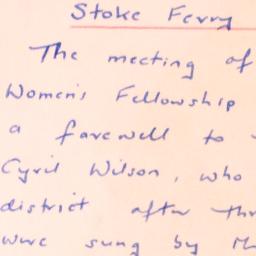 Stoke Ferry
The meeting of
Women's Fellowship
a farewell to
Cyril Wilson, who
district after thr
were sung by M